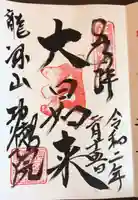 奉拝
令和二年
月十五日
大日如来
龍源山 功徳院